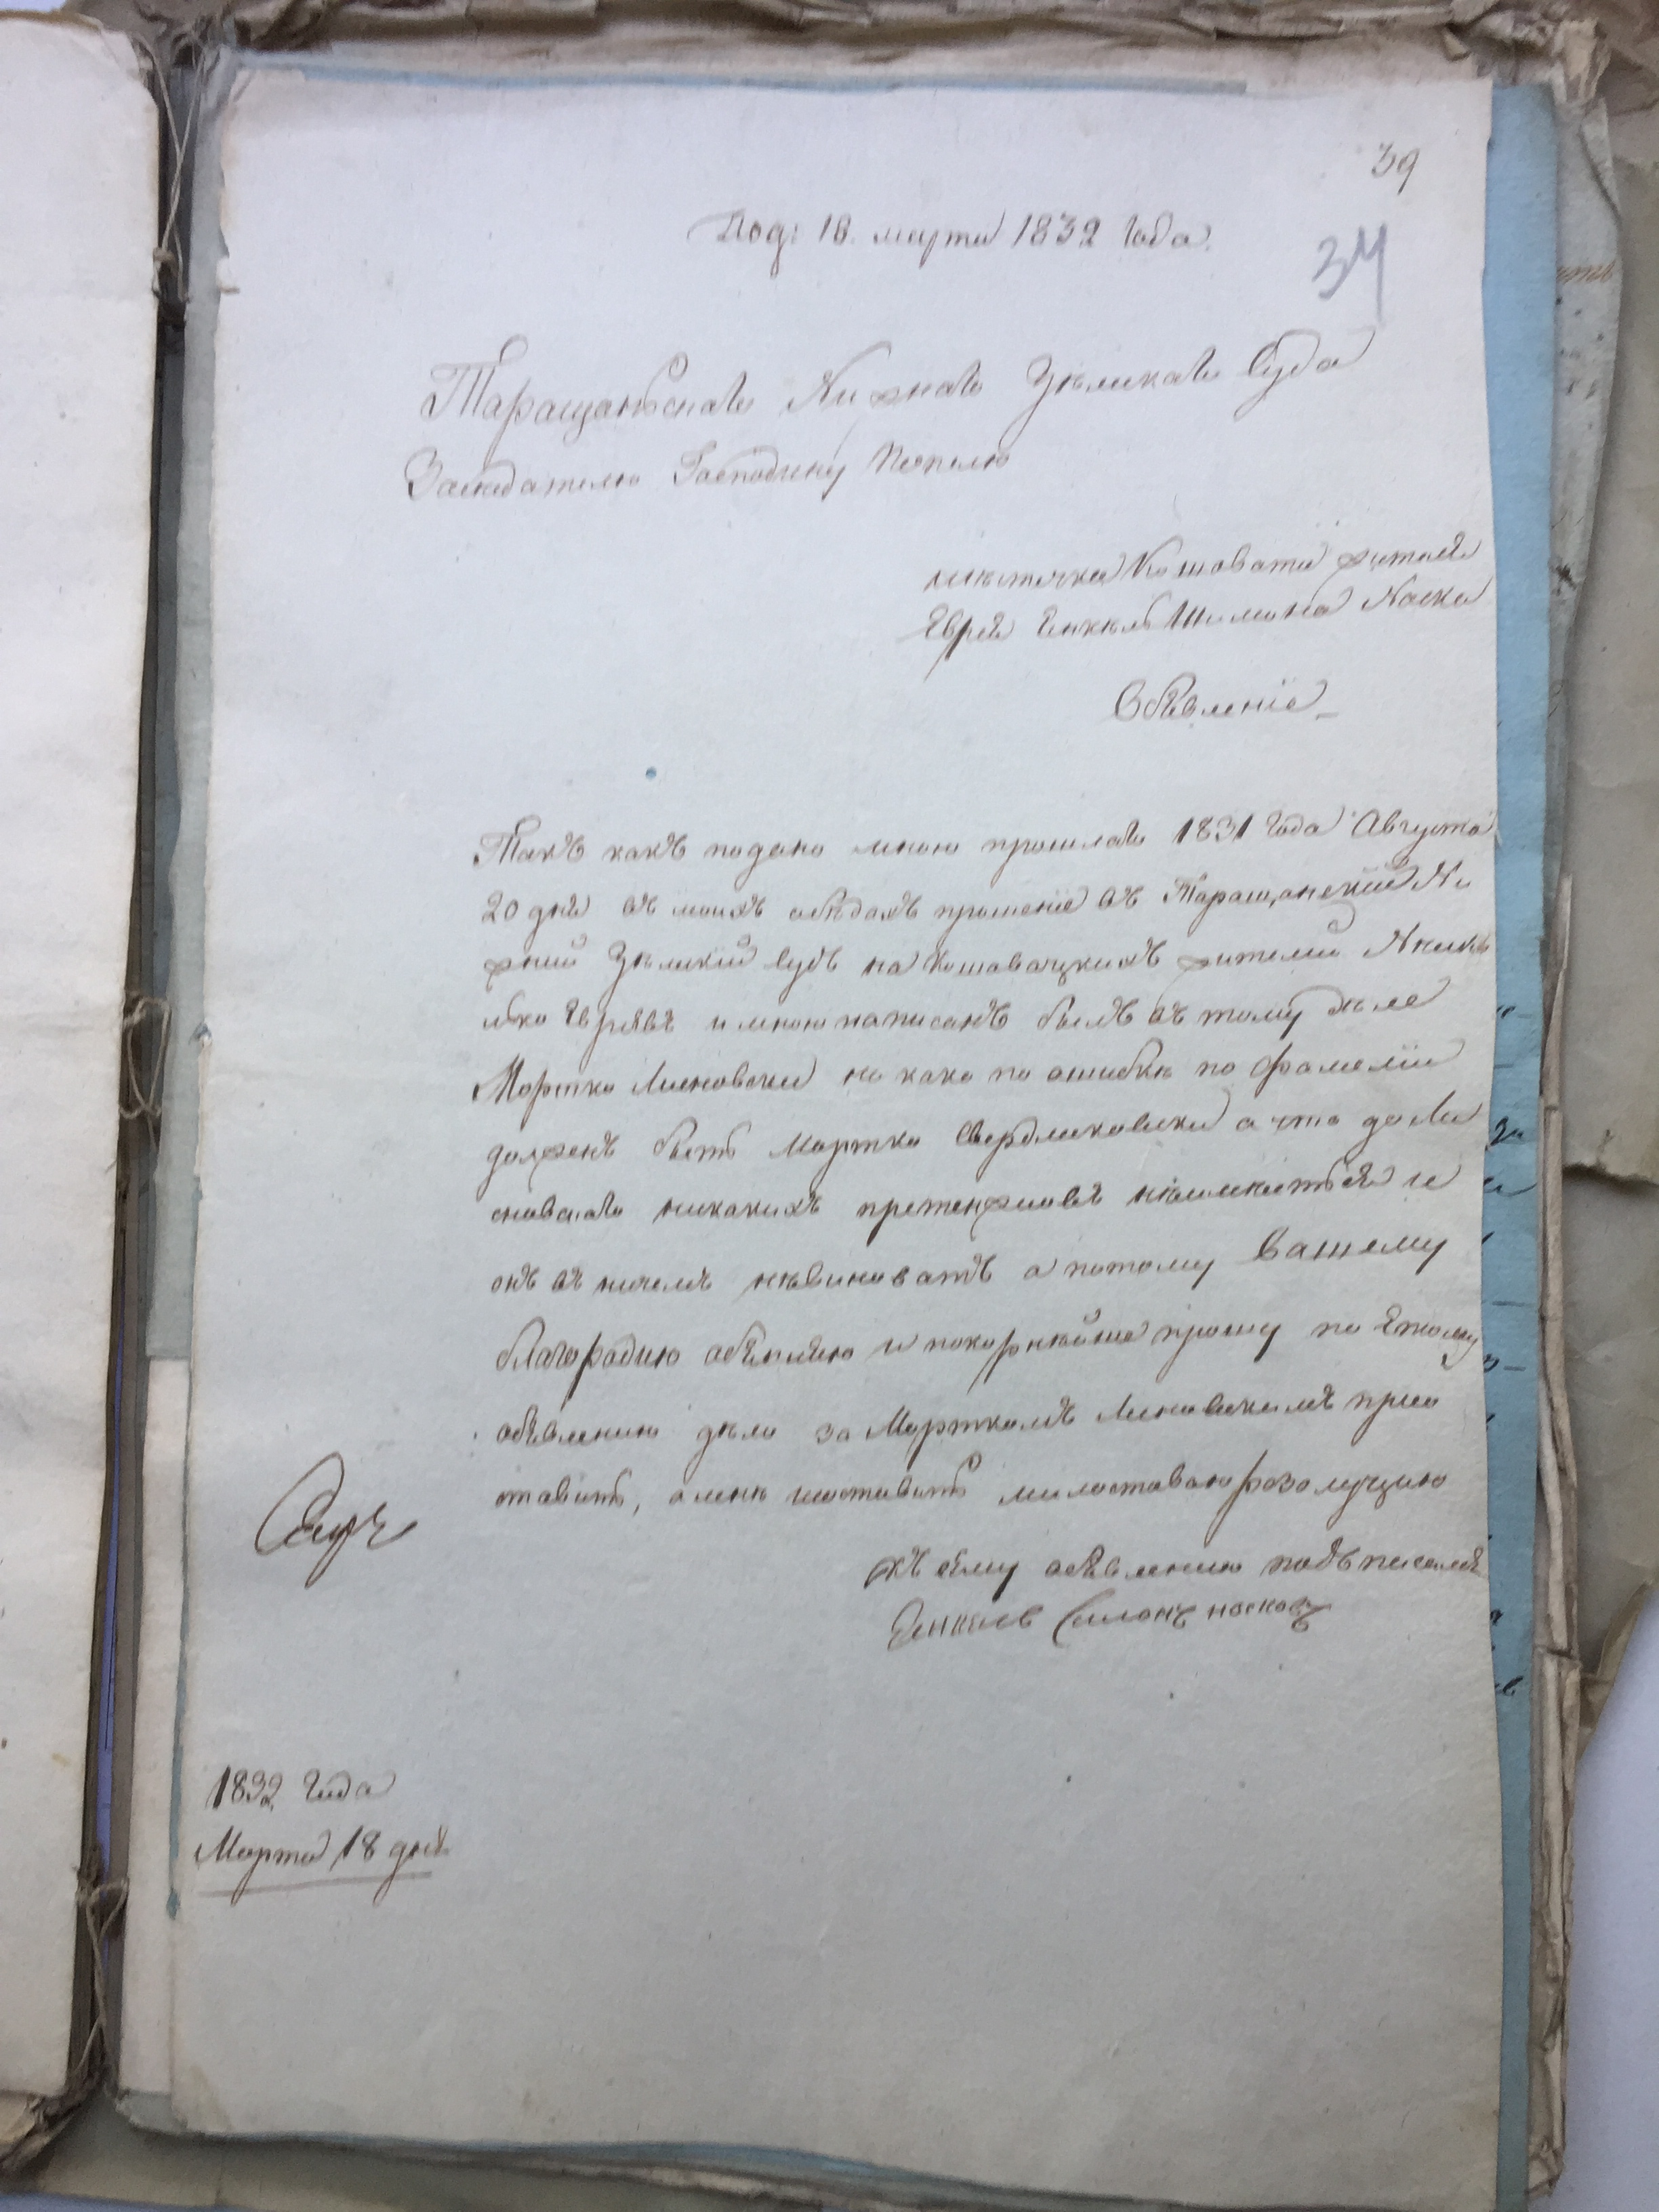 39
Под: 18. марта 1832 года.
34
Таращанскаго Нижнаго Земскаго Суда
Заседателю Господину Попелю
местечка Кошовати жителя
Еврея Енкеля Шимона Носка
Обявление
Такъ какъ подано мною прошлаго 1831 года Августа
20 дня въ моихъ обидахъ прошение въ Таращанский Ни
жний Земский Судъ на Кошовацкихъ жителей
Евреявъ и мною написанъ былъ въ тому деле
Мортко Линовски но како по ошибки по фамелии
долженъ быть Мортко Свердликовски а что до Ли
новскаго никакихъ претензиовъ неимеется и
онъ въ ничемъ невиноватъ а потому Вашему
благородию обявляю и покорнейше прошу по етому
обявлению дело за Морткомъ Линовскимъ прио
ставить, а мене милоставою розолуцию
къ сему обявлению подъписался
Енкель Симонъ носковъ
1832 года
Марта 18 дня